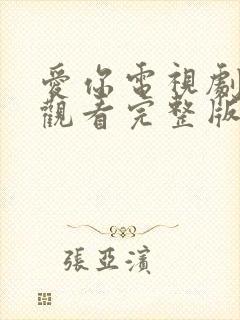 愛你電視劇
觀看完整版
張亞濱